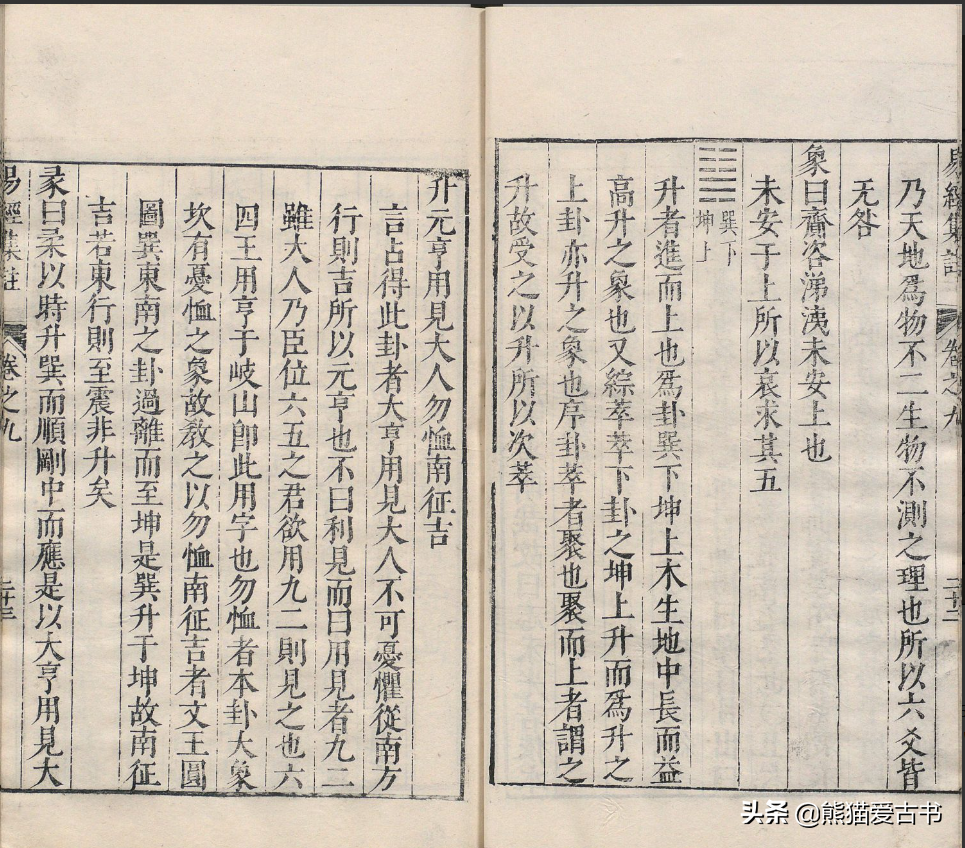 易經集註 卷之九 二十二
乃天地爲物不二生物不測之理也所以六爻皆
无咎
象曰齎咨涕洟未安上也
未安于上所以哀求其五
巽下
坤上
升者進而上也爲卦巽下坤上木生地中長而益
高升之象也又綜萃萃下卦之坤上升而爲升之
上卦亦升之象也序卦萃者聚也聚而上者謂之
升故受之以升所以次萃
升元亨用見大人勿恤南征吉
言占得此卦者大亨用見大人不可憂懼從南方
行則吉所以元亨也不曰利見而曰用見者九二
雖大人乃臣位六五之君欲用九二則見之也六
四王用亨于岐山卽此用字也勿恤者本卦大象
坎有憂恤之象故敎之以勿恤南征吉者文王圓
圖巽東南之卦過離而至坤是巽升于坤故南征
吉若東行則至震非升矣
彖曰柔以時升巽而順剛中而應是以大亨用見大
易經集註 卷之九 二十三
头条 @熊猫爱古书